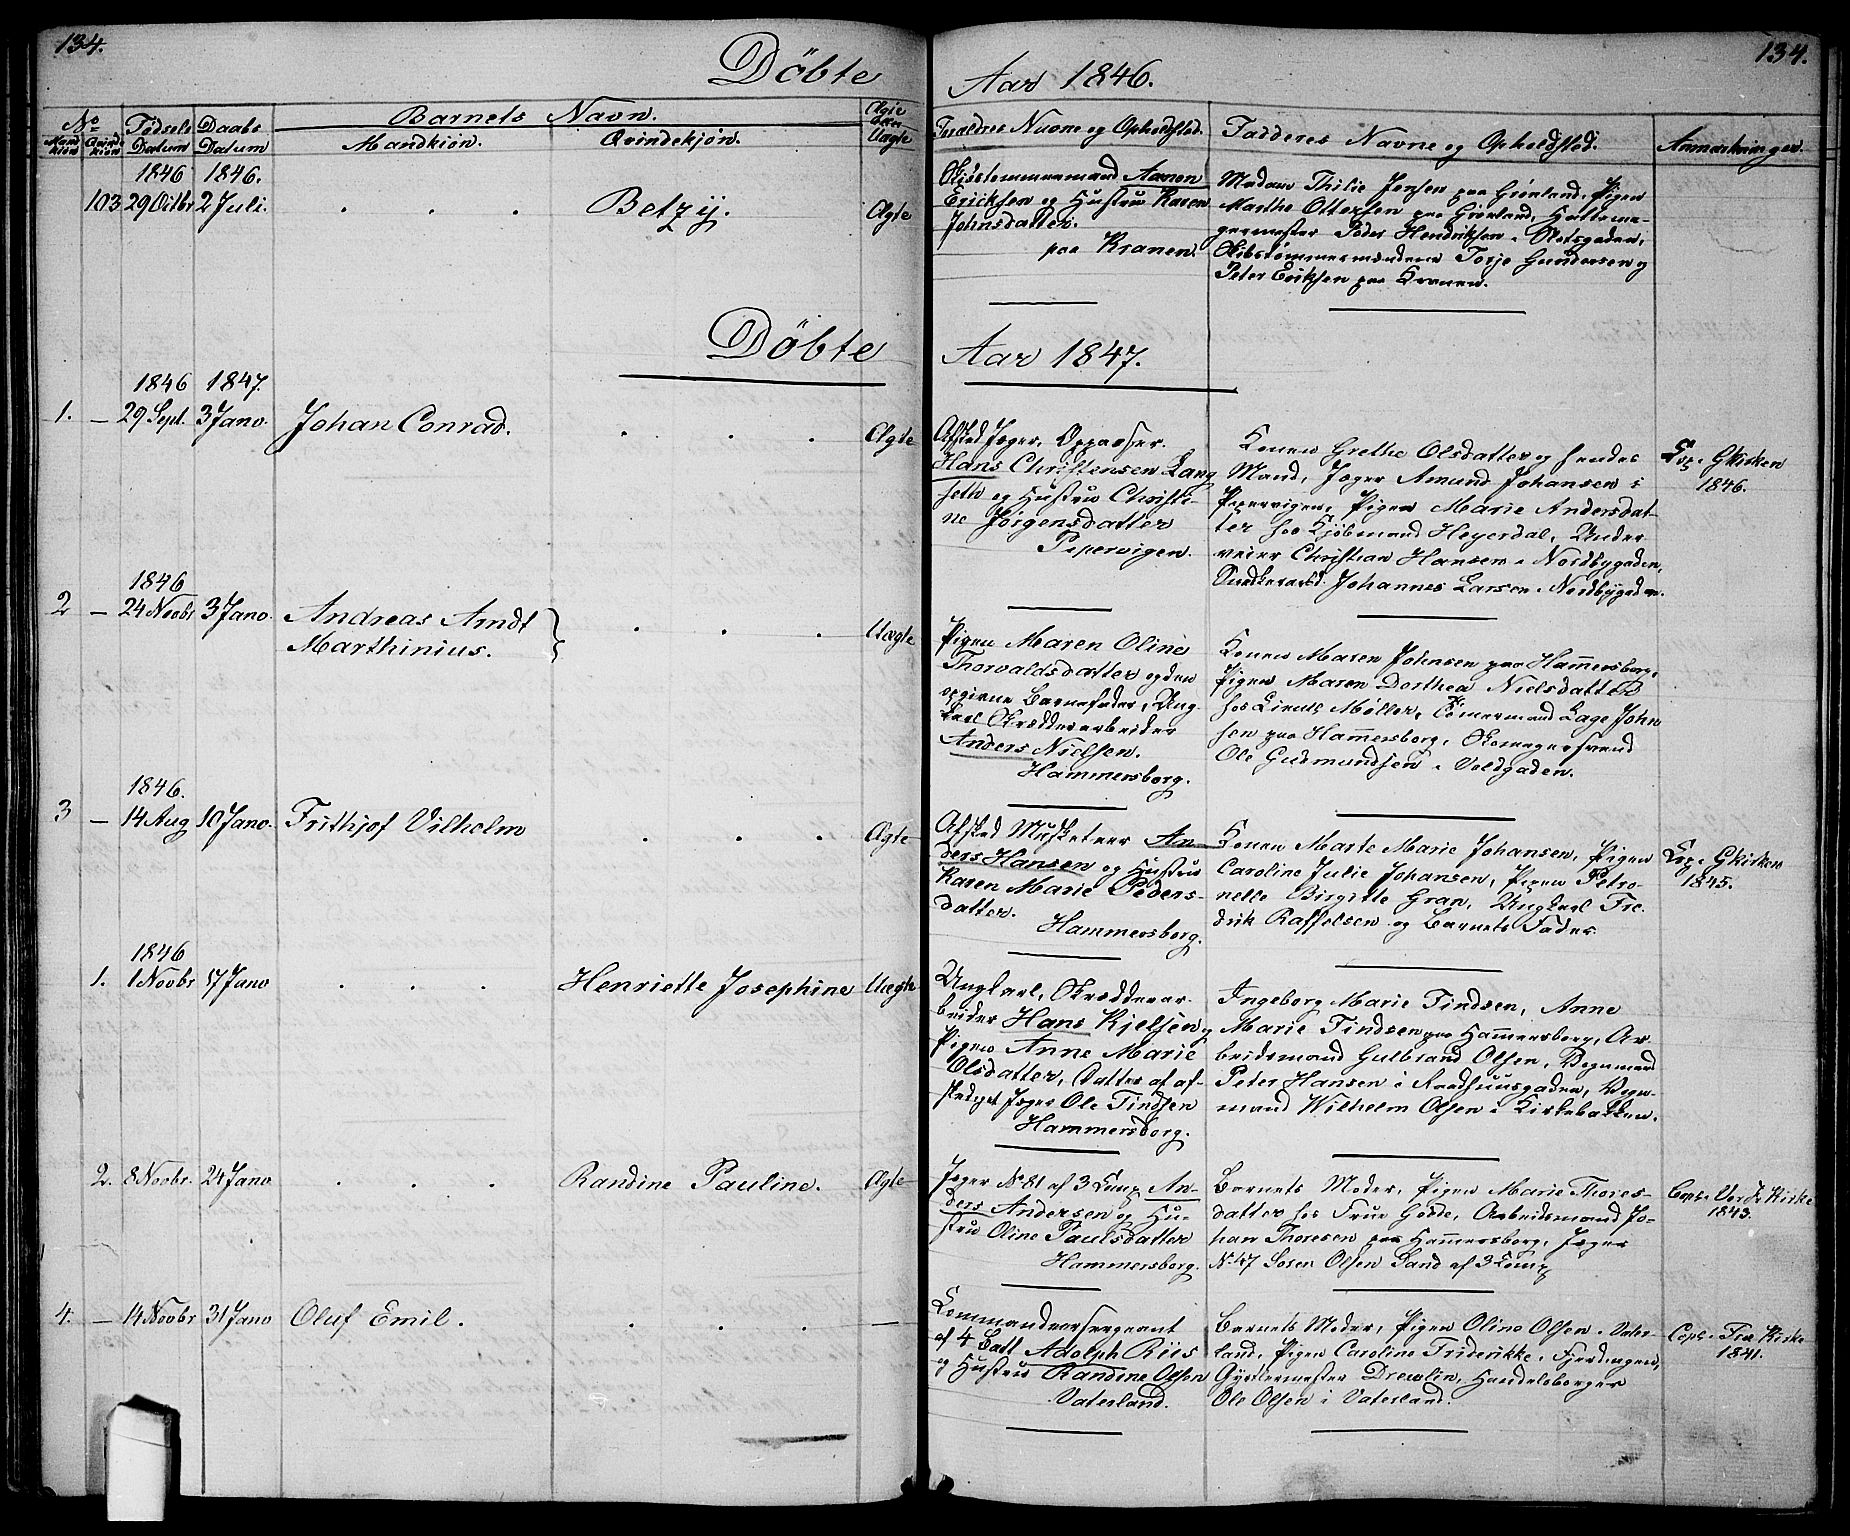 134.
Döbte
Aar 1846.
134.
No
Mand kiön
Qvinde kiön
Födsels Datum
Daabs Datum
Barnets Navn.
Mandkiön.
Qvindekjön.
Ægte eller Uægte
Foraldres Navne og Opholdssted.
Fadderes Navne og Opholdssted.
Anmærkninger.
1846 1846.
103 29 Octbr 2 Juli. Betzÿ. Ægte
Skibstømmermand Aanen
Ericksen og Hustru Karen
Johnsdatter.
paa Kranen.
Madam Thilie Jensen paa Grønland, Pigen
Marthe Ottersen paa Grønland, Hattema-
germester Peder Hendriksen i Slotsgaden,
Skibstømmermændene Torje Gundersen og
Peter Eriksen paa Kranen.
Döbte
Aar 1847.
1846 1847.
1. — 29 Sept. 3 Janv. Johan Conrad. Ægte
Afsked Jæger, Oppasser
Hans Christensen Lang
seth og Hustru Christi-
ne Jörgensdatter
Pipervigen.
Konen Grethe Olsdatter og hendes
Mand, Jæger Amund Johansen i
Pipervigen, Pigen Marie Andersdat-
ter hos Kjöbmand Heyerdal, Under
veier Christian Hansen i Nordbygaden,
Snedkersvend. Johannes Larsen i Nordbygaden.
Cop. i Gkirken
1846.
1846
2 — 24 Novbr 3 Janv. Andreas Arndt
Marthinius. Uægte
Pigen Maren Oline
Thorvaldsdatter og den
opgivne Barnefader, Ung
karl Skrædderarbeider
Anders Nielsen.
Hammersborg.
Konen Maren Johnsen paa Hammersborg,
Pigen Maren Dorthea Nielsdatter
hos Lieut. Møller, Tømermand Lage John
sen paa Hammersborg, Skomagersvend
Ole Gudmundsen i Voldgaden.
1846.
3 — 14 Aug 10 Janv. Frithjof Vilhelm Ægte
Afsked Musketeer An-
ders Hansen og Hustru
Karen Marie Peders-
datter.
Hammersborg.
Konen Marte Marie Johansen, Pigen
Caroline Julie Johansen, Pigen Petro-
nelle Birgitte Gran, Ungkarl Fre-
drik Raffelsen og Barnets Fader.
Cop. i Gkirken
1845.
1846
1. 1 Novbr 17 Janv Henriette Josephine Uægte
Ungkarl, Skrædderar-
beider Hans Kjelsen og
Pigen Anne Marie
Olsdatter, Datter af af-
skediget Jæger Ole Tindsen
Hammersborg.
Ingeborg Marie Tindsen, Anne
Marie Tindsen paa Hammersborg, Ar-
beidsmand Gulbrand Olsen, Vognmand
Peter Hansen i Raadhuusgaden, Vogn-
mand Wilhelm Olsen i Kirkebakken.
2. 8 Novbr. 24 Janv Randine Pauline. Ægte
Jæger No 81 af 3 Comp An-
ders Andersen og Hu-
stru Oline Paulsdatter
Hammersborg.
Barnets Moder, Pigen Marie Thores-
datter hos Frue Gosse, Arbeidsmand Jo-
han Thoresen paa Hammersborg, Jæger
No 47 Soren Olsen Sand af 3 Comp
Copl. i Vor Fr Kirke
1843.
4. — 14 Novbr 31 Janv Oluf Emil. —
Commandeersergeant
af 4 Batl Adolph Riis
og Hustru Randine Olsen
Vaterland.
Barnets Moder, Pigen Oline Olsen i Vater-
land, Pigen Caroline Friderikke i Fjerdingen,
Gjørtlermester Drewlin, Handelsborger
Ole Olsen i Vaterland.
Copl. i Fra Kirke
1841.